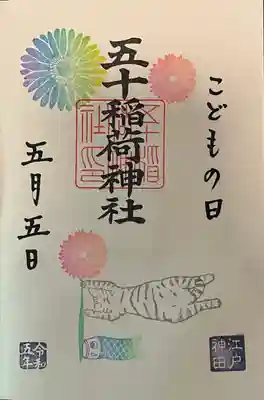 こどもの日
五十稲荷神社
五月五日
江戸
神田
令和
五年